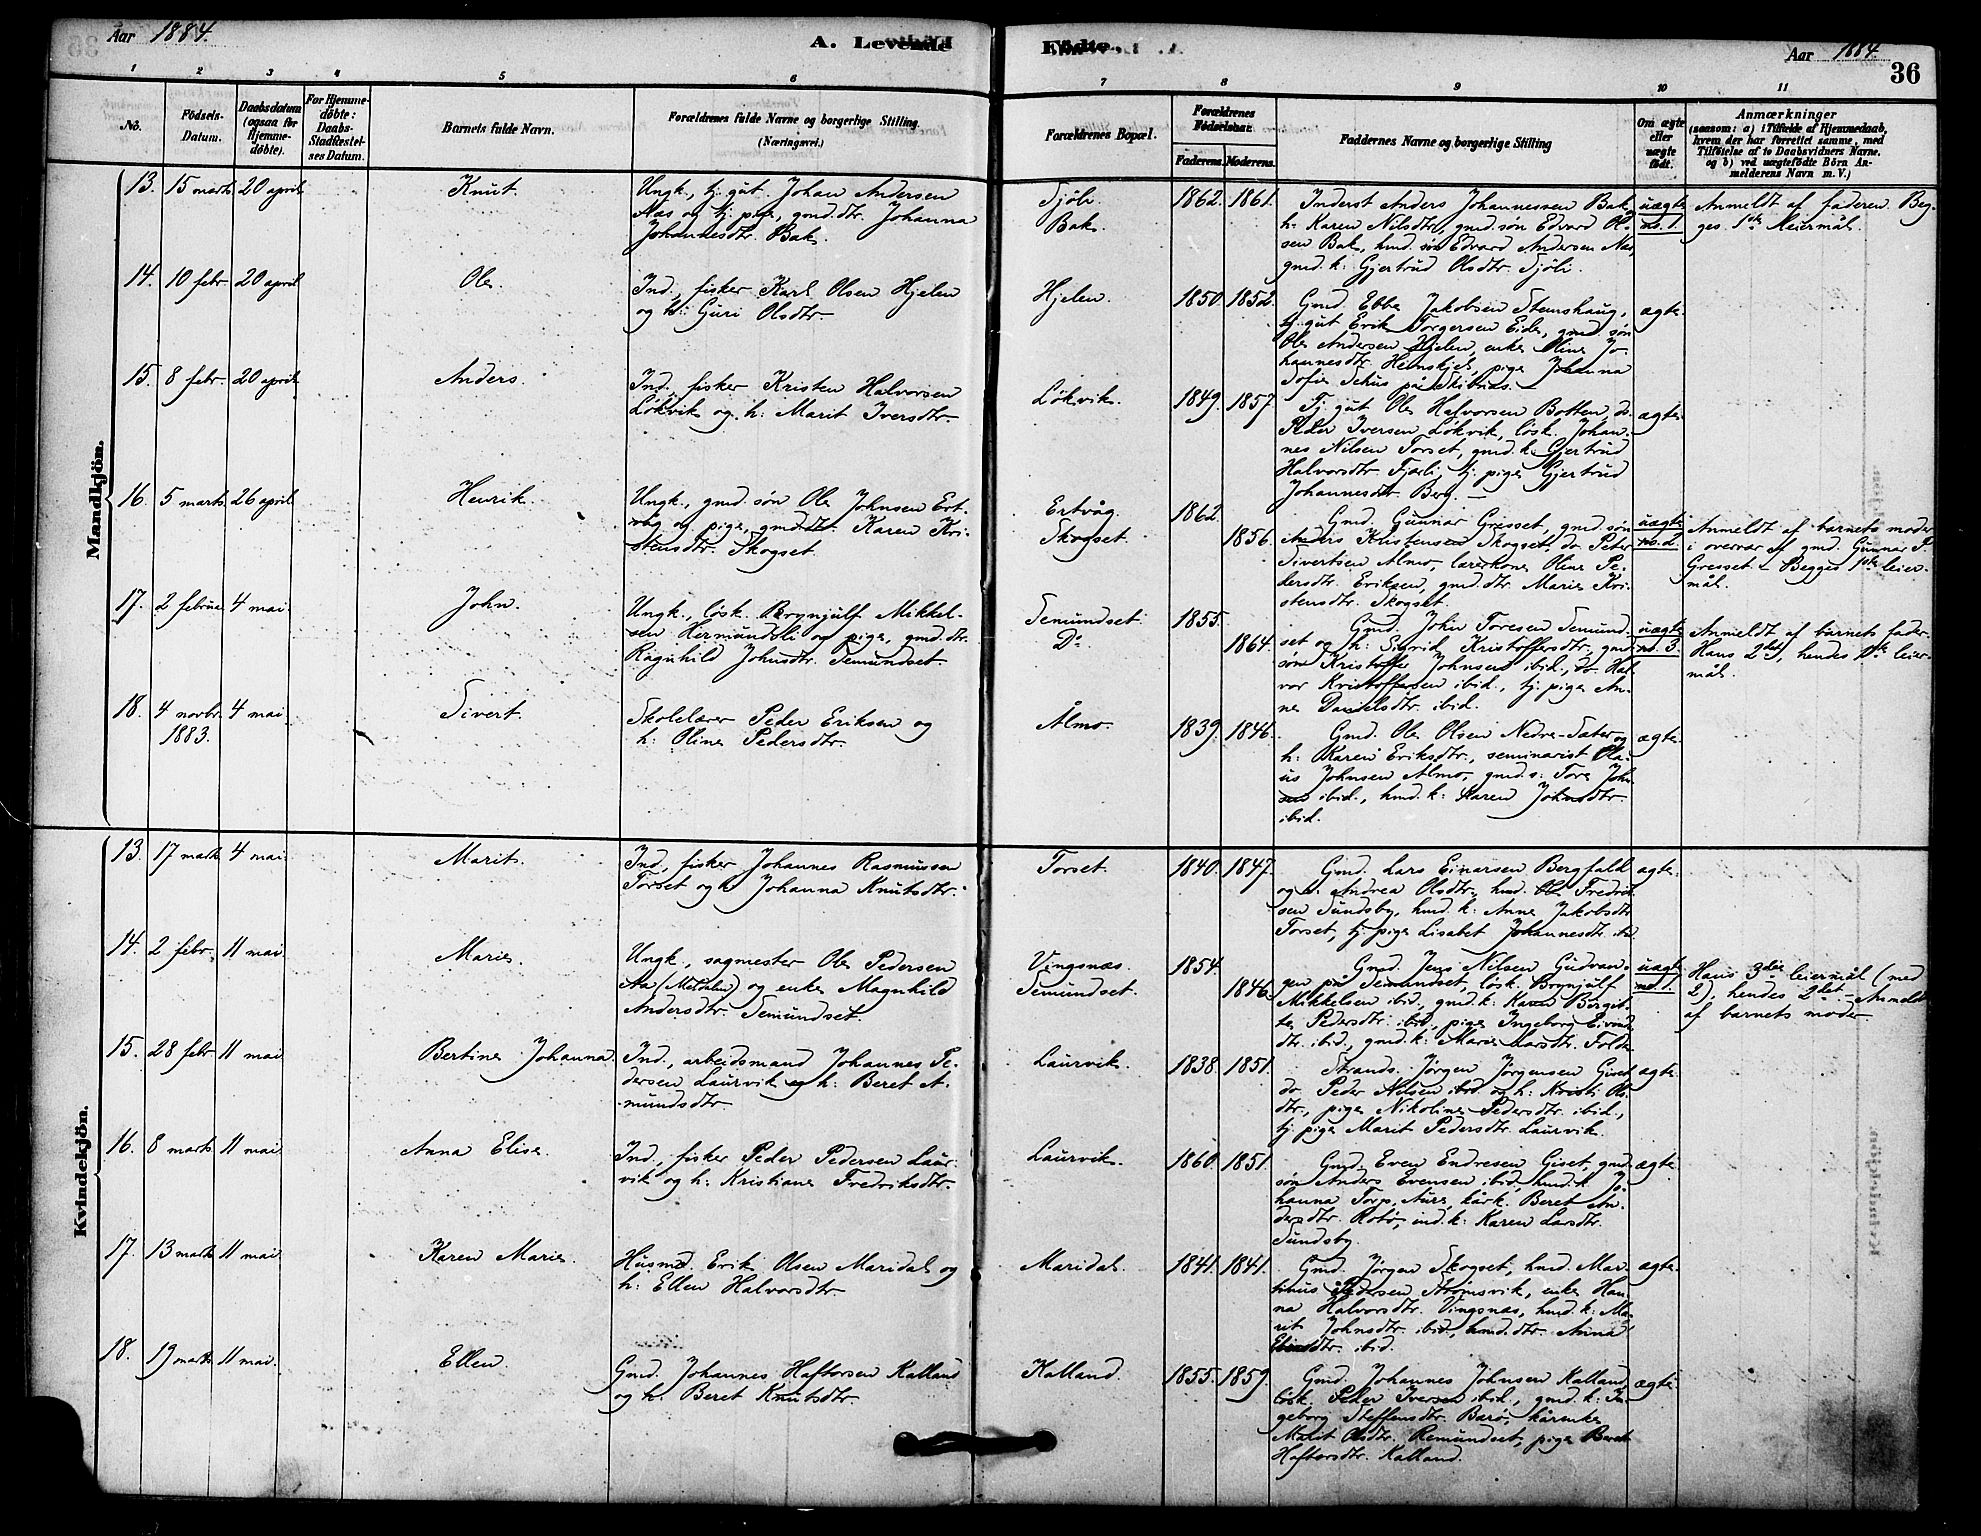 Aar 1884.
A. Levende
Födte.
Aar 1884.
36
1
2
3
4
5
6
7
8
9
10
11
No.
Födsels-
Datum.
Daabsdatum
(ogsaa for
Hjemme-
døbte).
For Hjemme-
døbte:
Daabs-
Stadfæstel-
ses Datum.
Barnets fulde Navn.
Forældrenes fulde Navne og borgerlige Stilling.
(Næringsvei.)
Forældrenes Bopæl.
Forældrenes
Födselsaar.
Faderens.
Moderens.
Faddernes Navne og borgerlige Stilling
Om ægte
eller
uægte
født.
Anmærkninger
(saasom: a) i Tilfælde af Hjemmedaab,
hvem der har forrettet samme, med
Tilføielse af to Daabsvidners Navne.
og b) ved uægtefödte Börn An-
melderens Navn m. V.)
Mandkjön.
13. 15 marts 20 april
Knut.
Ungk., tj. gut Johan Andersen
Næs og tj. pige, gmd. dtr. Johanna
Johannesdtr. Bak.
Sjöli.
Bak.
1862. 1861.
Inderst Anders Johannessen Bak,
h: Karen Nilsdtr., gmd. søn Edvard Ol-
sen Bak, hmd. søn Edvard Andersen Næs,
gmd. k: Gjertrud Olsdtr. Sjöli.
uægte
no. 1.
Anmeldt af faderen. Beg-
ges 1ste leiermål.
14. 10 febr. 20 april
Ole
Ind., fisker Karl Olsen Hjelen
og h: Guri Olsdtr.
Hjelen.
1850. 1852.
Gmd. Ebbe Jakobsen Stemshaug,
tj. gut Erik Torgersen Eide, gmd. søn
Ole Andersen Hjelen, enke Oline Jo-
hannesdtr. Hemskjel, pige Johanna
Sofie Schus på Skibnæs.
ægte.
15. 8 febr. 20 april
Anders.
Ind., fisker Kristen Halvorsen
Lökvik og h: Marit Iversdtr.
Lökvik.
1849. 1857.
Tj. gut Ole Halvorsen Botten, do.
Peder Iversen Lökvik, lösk. Johan-
nes Nilsen Torset, gmd. k: Gjertrud
Halvorsdtr. Fjærli, tj. pige Gjertrud
Johannesdtr. Berg.
ægte.
16. 5 marts 26 april
Henrik.
Ungk., gmd. søn Ole Johnsen Ert-
våg og pige, gmd. dtr. Karen Kri-
stensdtr. Skogset.
Ertvåg.
Skogset.
1862.
1856.
Gmd. Gunnar Gresset, gmd. søn
Anders Kristensen Skogset, do. Peter
Sivertsen Almo, lærerkone Oline Pe-
dersdtr. Eriksen, gmd. dtr. Marie Kri-
stensdtr. Skogset.
uægte
no. 2.
Anmeldt af barnets moder
i overvær af gmd. Gunnar P.
Gresset. Begges 1ste leier-
mål.
17. 2 februar 4 mai
John.
Ungk., lösk. Brynjulf Mikkel-
sen Hermundsli og pige, gmd. dtr.
Ragnhild Johnsdtr. Semundset.
Semundset.
Do
1855.
1864.
Gmd. John Toresen Semund-
set og h: Sigrid Kristoffersdtr., gmd.
søn Kristoffer Johnsen ibid., do. Hal-
vor Kristoffersen ibid., tj. pige An-
ne Danielsdtr. ibid.
uægte
no. 3.
Anmeldt af barnets fader.
Hans 2det, hendes 1ste leier-
mål.
18. 4 novbr. 4 mai
1883.
Sivert.
Skolelærer Peder Eriksen og
h: Oline Pedersdtr.
Ålmo.
1839. 1846.
Gmd. Ole Olsen Nedre-Sæter og
h: Karen Eriksdtr., seminarist Ola-
us Johnsen Almo, gmd. s: Tore John-
sen ibid., hmd. k: Karen Johnsdtr.
ibid.
ægte.
Kvindekjön.
13. 17 marts 4 mai
Marit.
Ind., fisker Johannes Rasmussen
Torset og h: Johanna Knutsdtr.
Torset.
1840. 1847.
Gmd. Lars Einarsen Bergfald
og h: Andrea Olsdtr., hmd. Ole Fredrik-
sen Sundsby, hmd. k: Anne Jakobsdtr.
Torset, tj. pige Lisabet Johannesdtr. ibd.
ægte.
14. 2 febr. 11 mai
Marie.
Ungk., sagmester Ole Pedersen
Aa (Meldalen) og enke Magnhild
Andersdtr. Semundset.
Vingsnæs.
Semundset.
1854.
1846.
Gmd. Jens Nilsen Gudvan-
gen på Semundset, lösk. Brynjulf
Mikkelsen ibid., gmd. k: Karen Bergit-
te Pedersdtr. ibid., pige Ingeborg Eivind-
dtr. ibid., gmd. k: Marie Larsdtr. Folde
uægte
no. 1.
Hans 3die leiermål (med
2), hendes 2det. Anmeldt
af barnets moder
15. 28 febr. 11 mai
Bertine Johanna.
Ind., arbeidsmand Johannes Pe-
dersen Laurvik og h: Beret A-
mundsdtr.
Laurvik.
1838. 1851.
Strands. Jörgen Jörgensen Giset,
do. Peder Nilsen ibid. og h: Kristi Ols-
dtr., pige Nikoline Pedersdtr. ibid.,
tj. pige Marit Pedersdtr. Laurvik.
ægte.
16. 8 marts 11 mai
Anna Elise.
Ind., fisker Peder Pedersen Laur-
vik og h: Kristiane Fredriksdtr.
Laurvik.
1860. 1851.
Gmd. Even Endresen Giset, gmd.
søn Anders Evensen ibid., hmd. k: Jo-
hanna Torp, Aure, kårk. Beret An-
dersdtr. Rotö, ind. k: Karen Larsdtr.
Sundsby.
ægte.
17. 13 marts 11 mai
Karen Marie.
Husmd. Erik Olsen Maridal og
h: Ellen Halvorsdtr.
Maridal.
1841. 1841.
Gmd. Jörgen Skogset, hmd. Mar-
tinus Pedersen Strömsvik, enke Han-
na Halvorsdtr. Vingsnæs, hmd. k: Ma-
rit Johnsdtr. ibid., hmd. dtr. Anna
ibid.
ægte.
18. 19 marts 11 mai
Ellen.
Gmd. Johannes Haftorsen Kalland
og h: Beret Knutsdtr.
Kalland.
1855. 1859.
Gmd. Johannes Johnsen Kalland,
lösk. Peder Iversen ibid., gmd. k: In-
geborg Steffensdtr. Barö, kårenke
Marit Olsdtr. Remundset, pige Beret
Haftorsdtr. Kalland.
ægte.